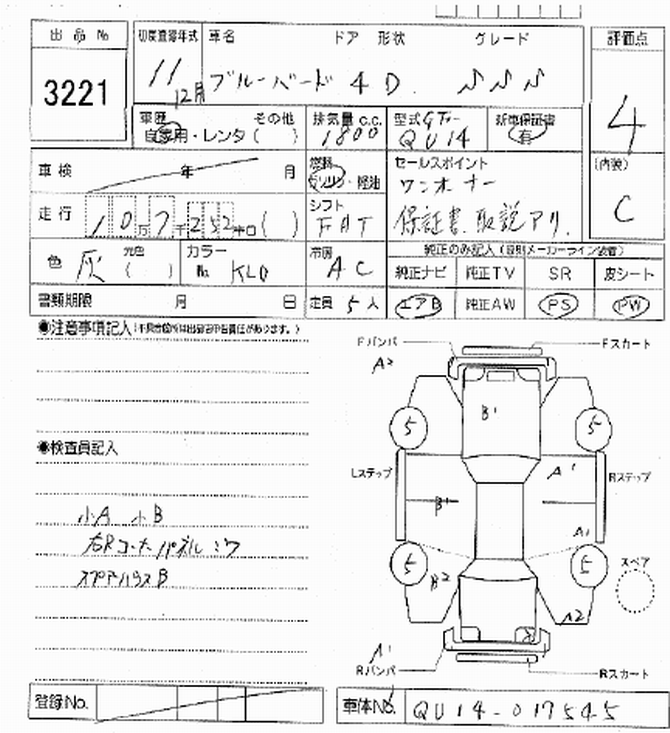 出品№ 初度登録年式 車名 ドア 形状 グレード 評価点
3221 11 12月 ブルーバード 4D. SSS 4
車歴 その他 排気量 c.c. 型式 新車保証書
自家用・レンタ ( ) 1800 QU14 有
車検 年 月 燃料 ガソリン・軽油 セールスポイント (内装)
ワンオーナー C
走行 10万7千252キロ ( ) シフト FAT 保証書、取説アリ.
色 灰 元色 ( ) カラー № KL0 冷房 AC 純正のみ記入 (原則メーカーライン装着)
純正ナビ 純正TV SR 皮シート
書類期限 月 日 定員 5人 エアB 純正AW PS PW
◉注意事項記入
◉検査員記入
小A 小B
右Rコーナーパネル ミワ
スペアハウスB
Fバンパ Fスカート
A2
B1
5 5
Lステップ A1 Rステップ
B1
A1
5 5 スペア
B2
A2
A1
Rバンパ Rスカート
登録No. 車体No. QU14-017545